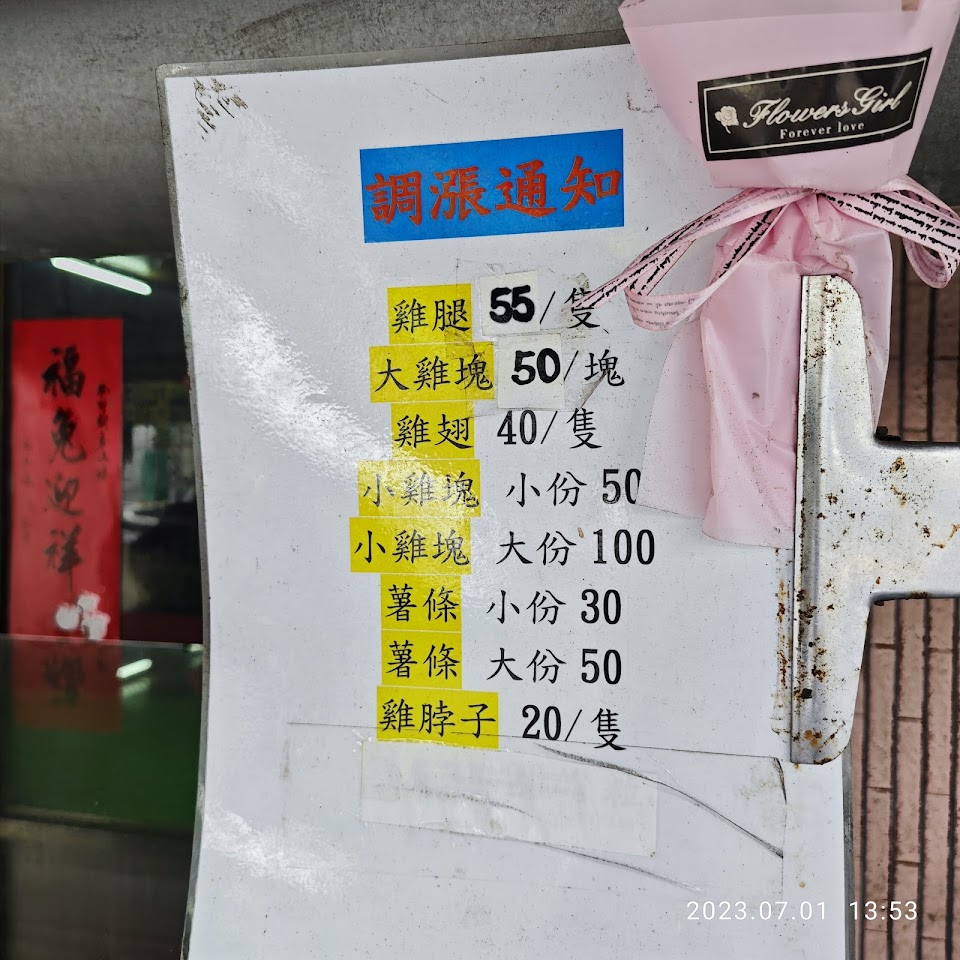 Flowers Girl
Forever love
調漲通知
雞腿 55/隻
大雞塊 50/塊
雞翅 40/隻
小雞塊 小份 50
小雞塊 大份 100
薯條 小份 30
薯條 大份 50
雞脖子 20/隻
福兔迎祥
2023.07.01 13:53